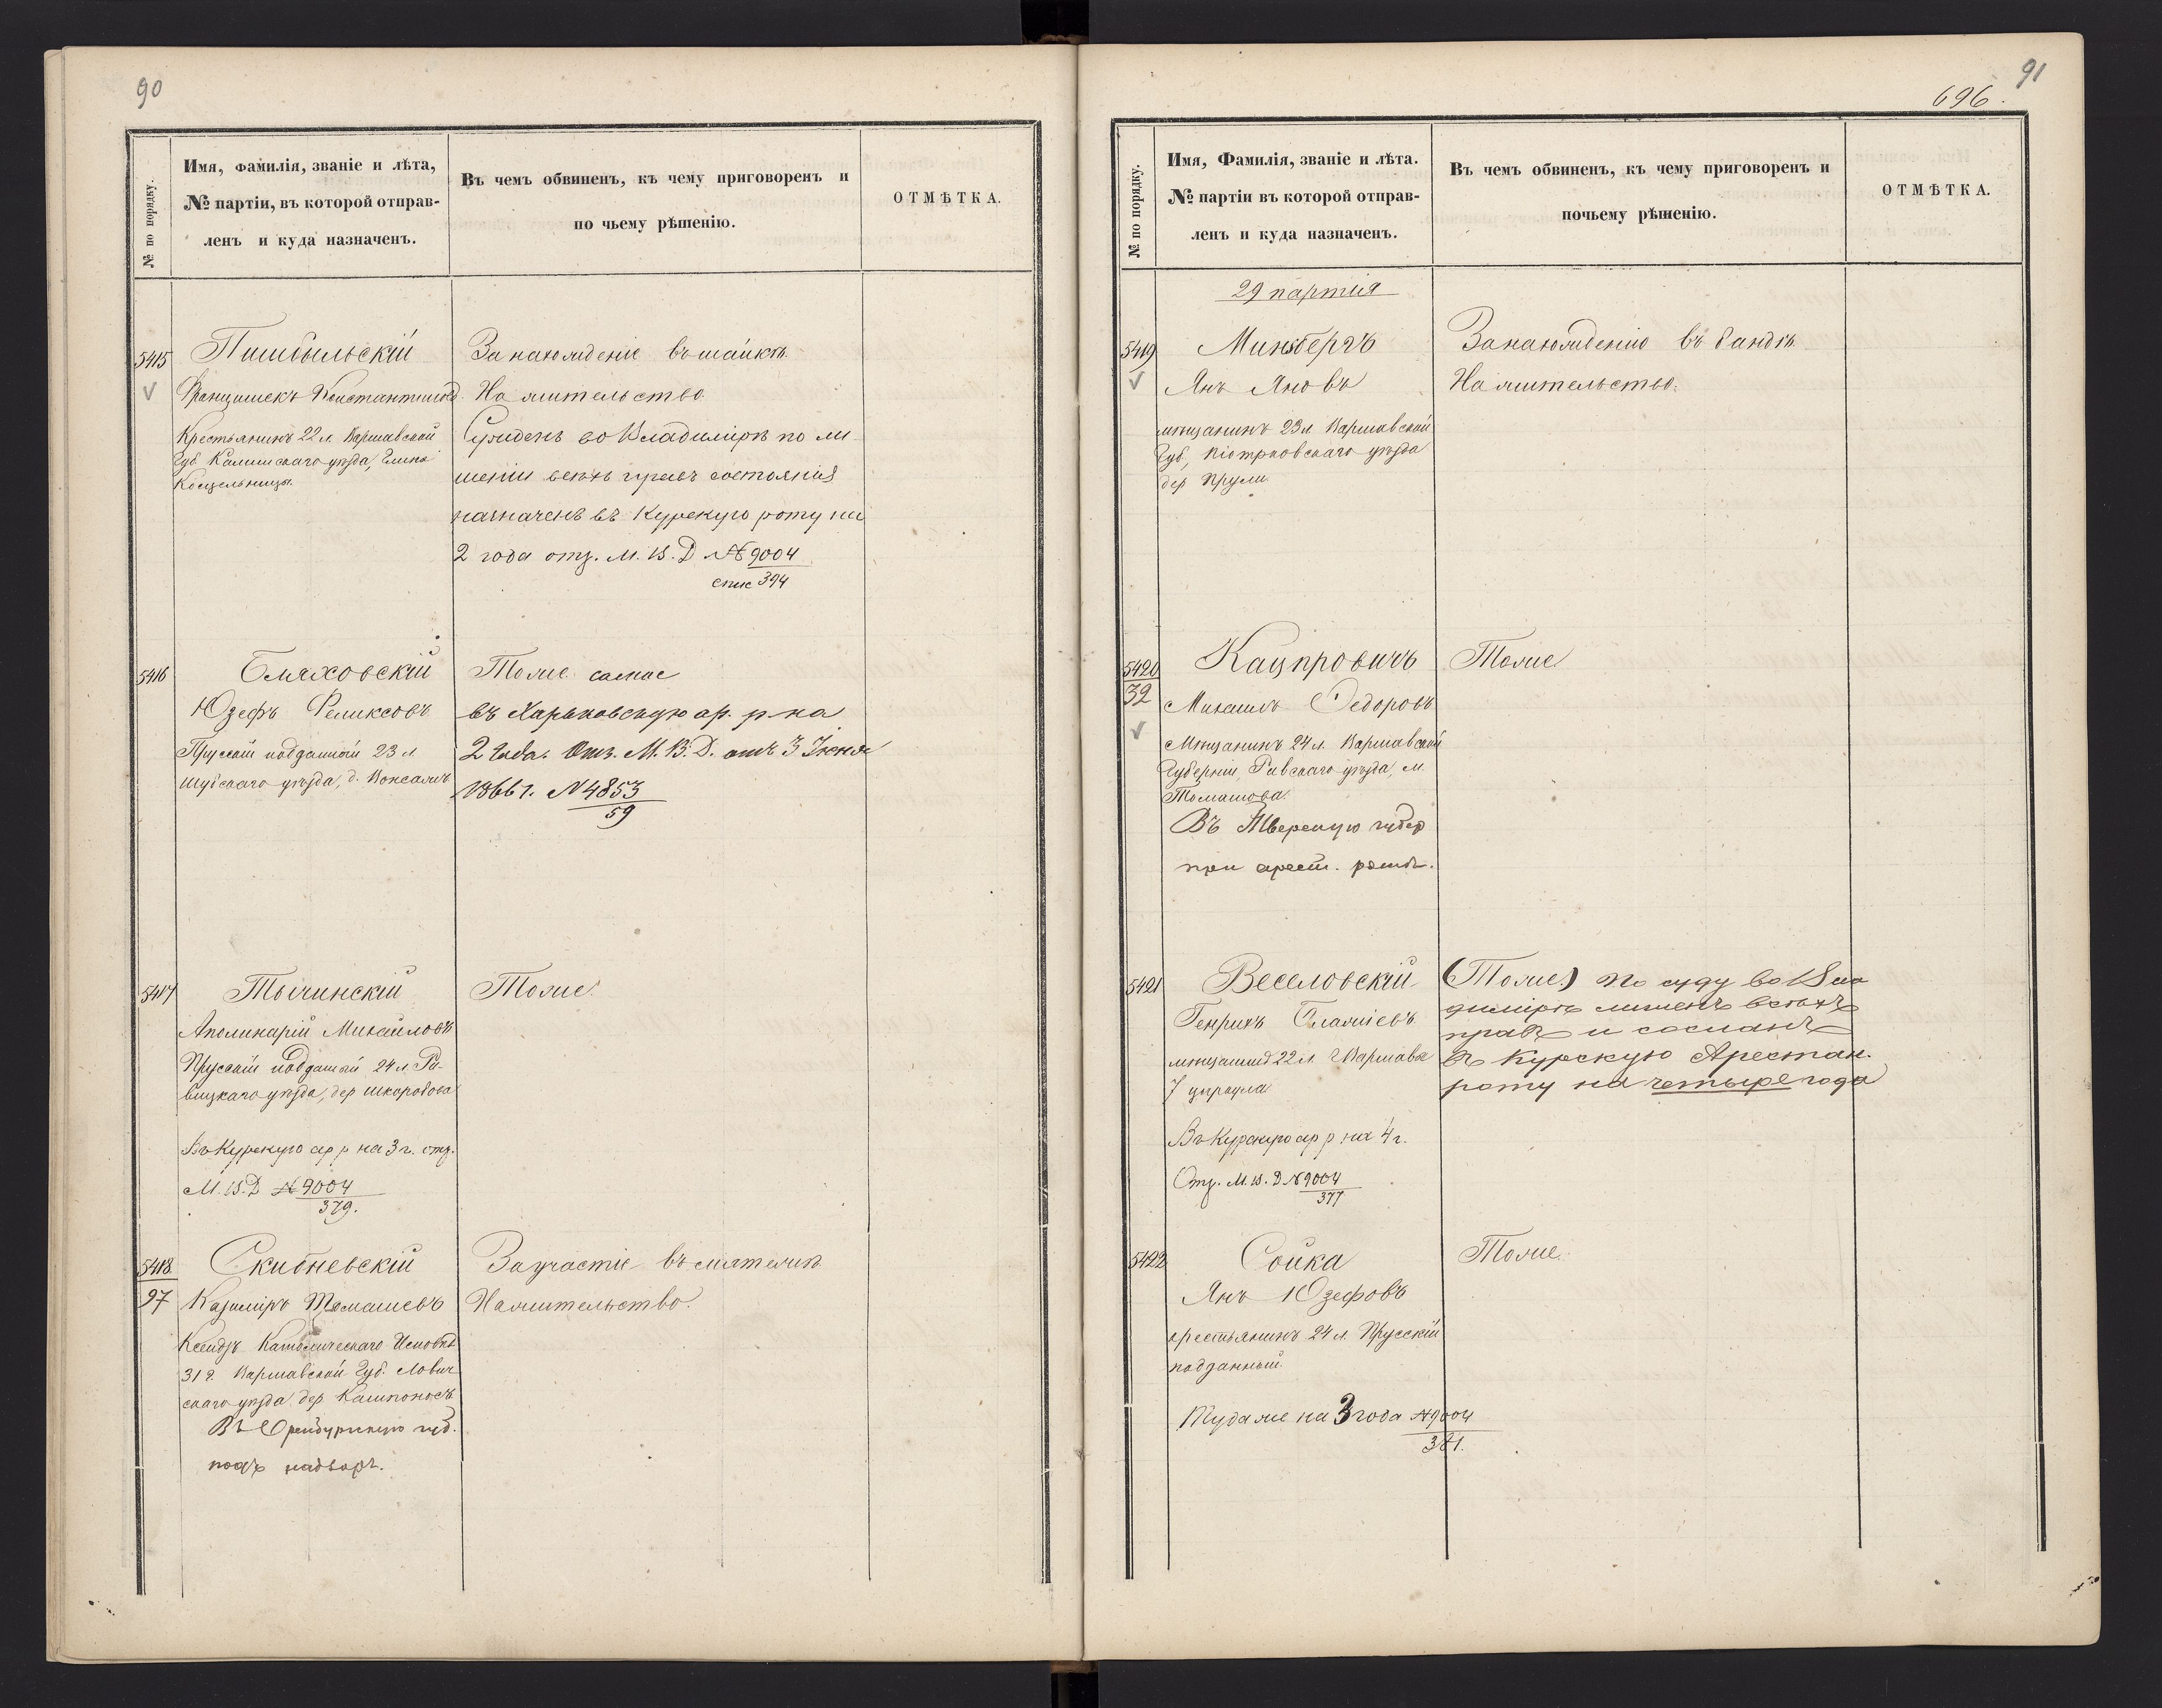 90
№ по порядку.
Имя, фамилія, званіе и лѣта,
№ партіи, въ которой отправ-
ленъ и куда назначенъ.
Въ чемъ обвиненъ, къ чему приговоренъ и
по чьему рѣшенію.
ОТМѢТКА.
5415
Пишбыльскій
Францишекъ Константиновъ
Крестьянинъ 22 л. Варшавской
Губ. Калишскаго уѣзда, Гмина
Косцельницы.
За нахожденіе въ шайкѣ
На жительство.
Сужденъ во Владимірѣ по ли-
шеніи всѣхъ правъ состоянія
назначенъ въ Курскую роту на
2 года отз. М. В. Д. № 9004
спис 394
5416
Бляховскій
Юзефъ Феликсовъ
Прусскій подданный 23 л.
Шубскаго уѣзда, д.
Тоже самое
въ Харьковскую ар. р. на
2 года. Отз. М. В. Д. отъ 3 Іюня
1866 г. № 4853
59
5417
Тычинскій
Аполинарій Михайловъ
Прусскій подданный 24 л. Ра-
вицкаго уѣзда, дер. Шкородова
Въ Курскую ар р на 3 г. отз.
М. В. Д. № 9004
379.
Тоже.
5418
97
Скибневскій
Казиміръ Томашевъ
Ксендзъ Католическаго Исповѣд
31 г. Варшавской Губ. Лович
скаго уѣзда дер. Кампоносъ
Въ Оренбургскую губ.
подъ надзоръ.
За участіе въ мятежѣ
На жительство.
91
696.
№ по порядку.
Имя, Фамилія, званіе и лѣта.
№ партіи въ которой отправ-
ленъ и куда назначенъ.
Въ чемъ обвиненъ, къ чему приговоренъ и
почьему рѣшенію.
ОТМѢТКА.
29 партія
5419
Минбергъ
Янъ Яновъ
мѣщанинъ 23 л. Варшавской
Губ., Піотрковскаго уѣзда
дер.
За нахожденіе въ бандѣ.
На жительство.
5420
32
Кацпровичъ
Михаилъ Федоровъ
Мѣщанинъ 24 л. Варшавской
Губерніи, Равскаго уѣзда, м.
Томашова.
Въ Тверскую губер
при арест. ротѣ.
Тоже
5421
Веселовскій
Генрихъ Блажіевъ
мѣщанинъ 22 л. г. Варшава
7 циркула.
Въ Курскую ар р на 4 г.
Отз. М. В. Д. № 9004
377
(Тоже) По суду во Вла
димірѣ лишенъ всѣхъ
правъ и сосланъ
въ Курскую Арестан.
роту на четыре года
5422
Сойка
Янъ Юзефовъ
крестьянинъ 24 л. Прусскій
подданный.
Туда же на 3 года № 9004
381.
Тоже.